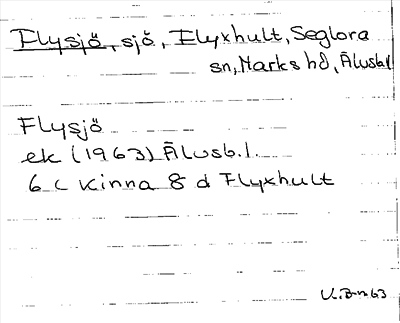 Flysjö, sjö, Flyxhult, Seglora
sn, Marks hd, Älvsb.l
Flysjö
ek (1963) Älvsb.l.
6 c Kinna 8 d Flyxhult
63